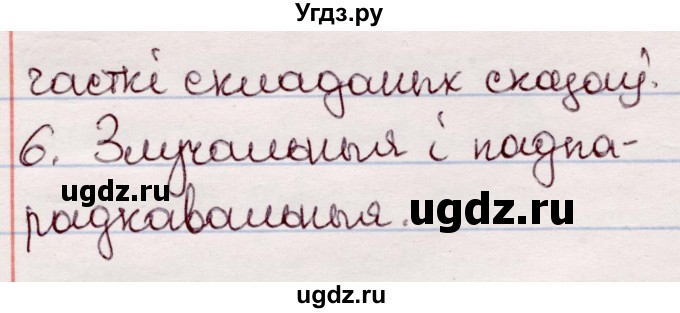 Угдз.ру
часткі складаных сказаў.
6. Злучальныя і падпа-
радкавальныя.
ugdz.ru
ugdz.ru
ugdz.ru